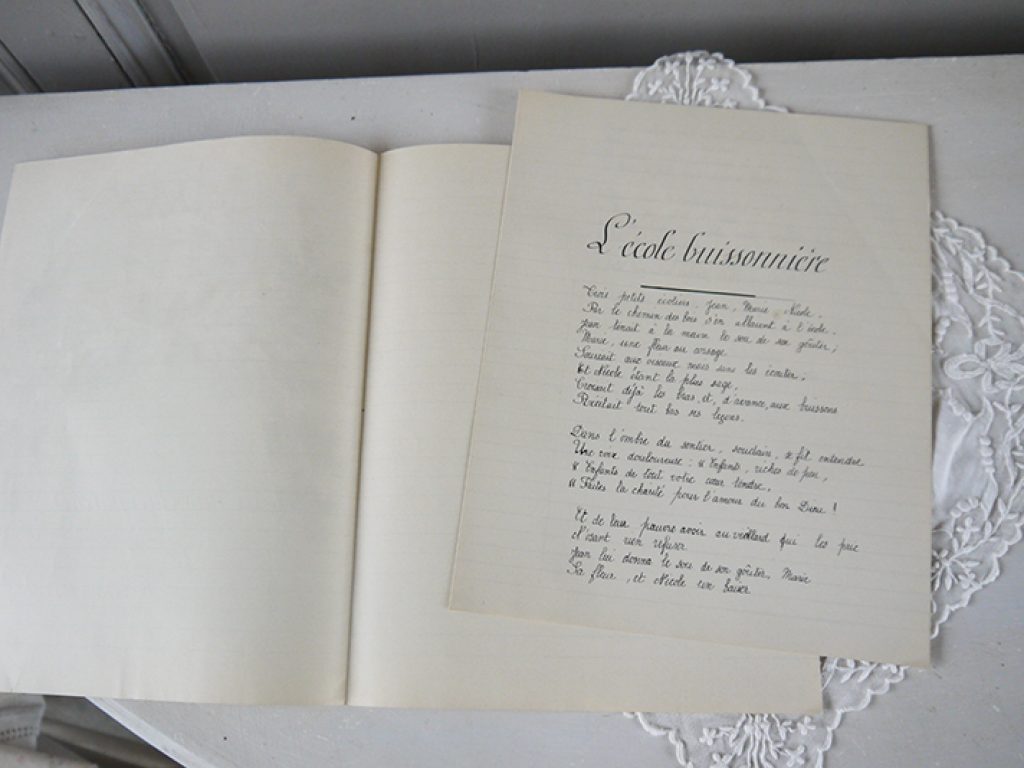 L'école buissonnière
Trois petits écoliers, Jean, Marie, Nicole.
Par le chemin des bois s'en allaient à l'école.
Jean tenait à la main le sou de son goûter;
Marie, une fleur au corsage
Souriait aux oiseaux mais sans les écouter;
Et Nicole étant la plus sage,
Croisait déjà les bras, et, d'avance, aux buissons
Récitait tout bas ses leçons.
Dans l'ombre du sentier, soudain, se fit entendre
Une voix douloureuse: "Enfants, riches de peu,
" Enfants de tout votre cœur tendre,
" Faites la charité pour l'amour du bon Dieu!
Et de leur pauvre avoir au vieillard qui les prie
N'osant rien refuser
Jean lui donna le sou de son goûter, Marie
Sa fleur, et Nicole un baiser